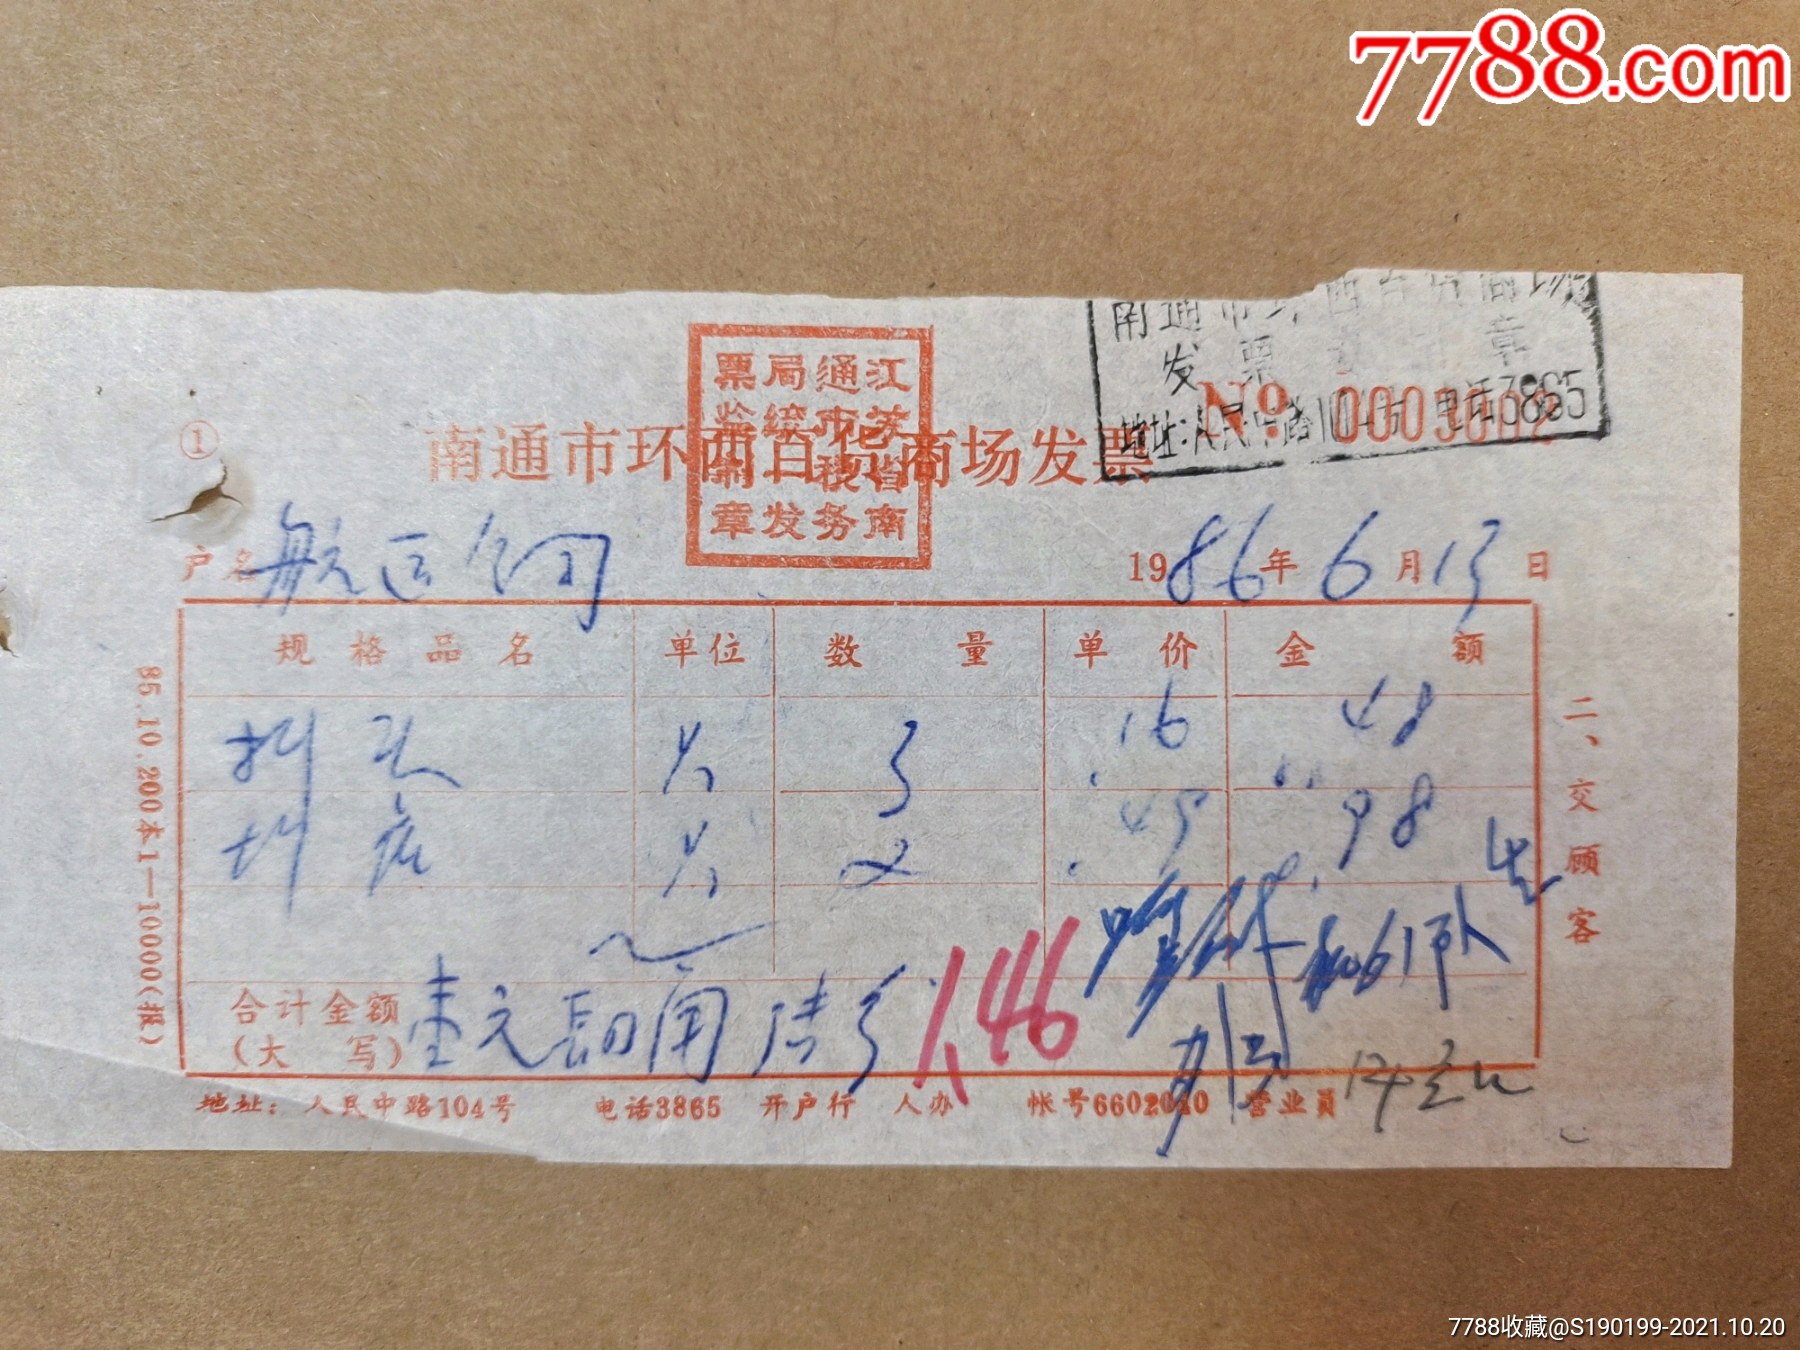 7788.com
南通市环西百货商场
发票专章
地址:人民中路104号 电话3865
江苏省南通市税务局统发票监制章
①
№ 0003002
南通市环西百货商场发票
户名 航运公司 1986年6月13日
规格品名 单位 数量 单价 金额
抖头 只 3 .16 .48
只 2 .49 .98
合计金额(大写) 壹元肆角陆分 1.46
地址:人民中路104号 电话3865 开户行 人办 帐号6602040 营业员
85.10.200本1—10000(报)
二、交顾客
7788收藏@S190199-2021.10.20